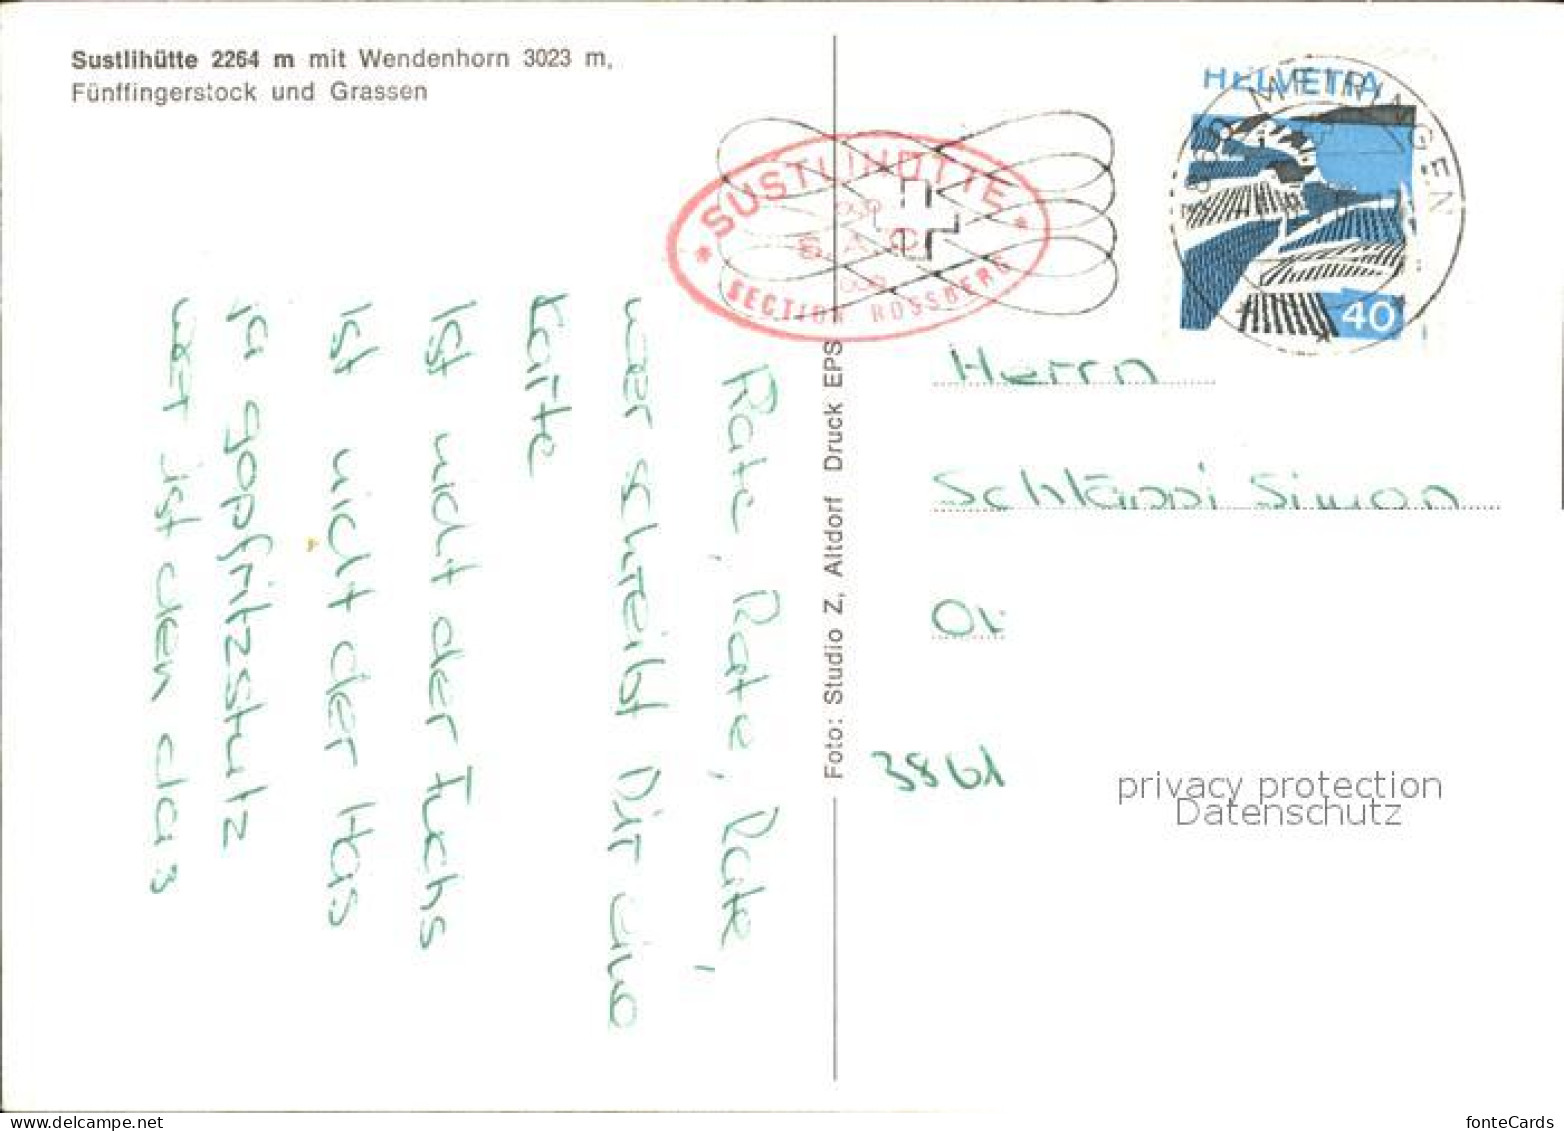 Sustlihütte 2264 m mit Wendenhorn 3023 m,
Fünffingerstock und Grassen
HELVETIA
40
MEIRINGEN
* SUSTLIHÜTTE *
S.A.C.
SECTION ROSSBERG
Foto: Studio Z, Altdorf Druck EPS
Rate, Rate, Rate,
wer schreibt Dir eine
Karte
Ist nicht der Fuchs
Ist nicht der Has
ja gopfritzstutz
wer ist den das
Herrn
Schläppi Simon
3861
privacy protection
Datenschutz
www.delcampe.net
fonteCards